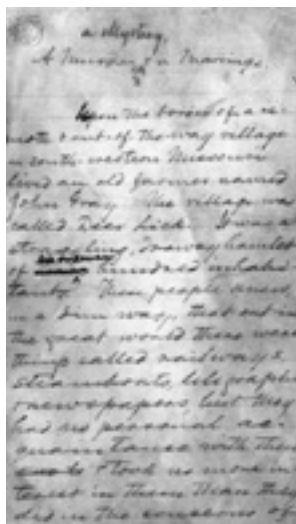 a Mystery.
A Murder, & a Marriage.
Upon the border of a re-
mote & out-of-the-way village
in south-western Missouri
lived an old farmer named
John Gray. The village was
called Deer Lick. It was a
straggling, drowsy hamlet
of hundred inhabi-
tants. These people knew,
in a dim way, that out in
the great world there were
things called railways,
steamboats, telegraphs
& newspapers, but they
had no personal ac-
quaintance with them
& took no more in-
terest in them than they
did in the concerns of